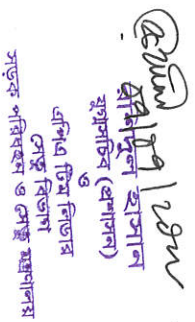 হাসান
যুগ্মসচিব (প্রশাসন)
ও
এপিএ টিম লিডার
সেতু বিভাগ
সড়ক পরিবহন ও সেতু মন্ত্রণালয়